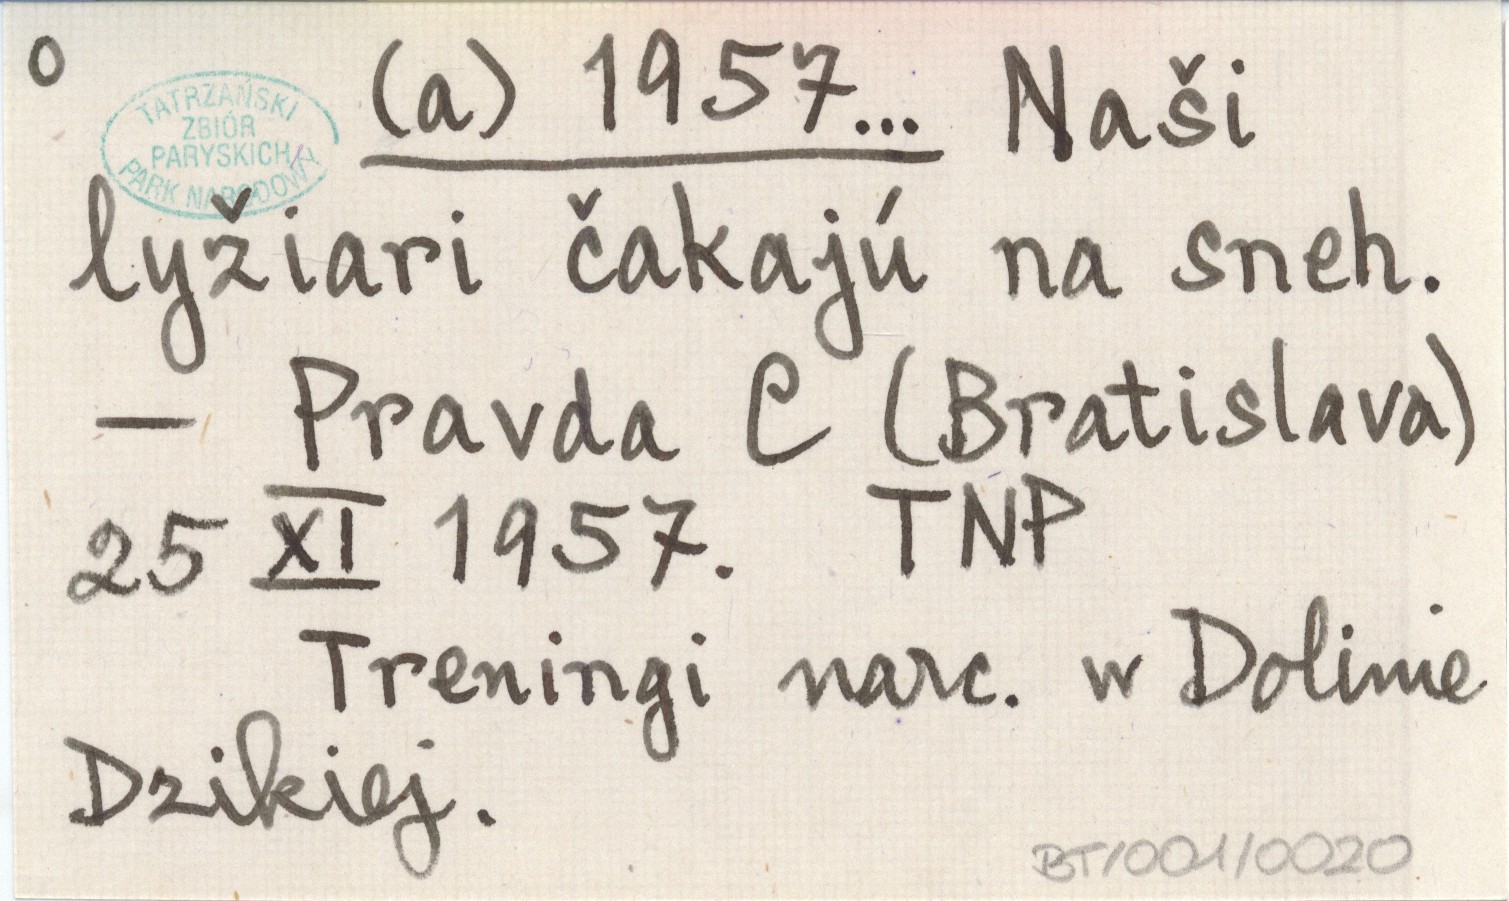 O
TATRZAŃSKI
ZBIÓR
PARYSKICH
PARK NARODOWY
(a) 1957... Naši
lyžiari čakajú na sneh.
— Pravda C (Bratislava)
25 XI 1957. TNP
Treningi narc. w Dolinie
Dzikiej.
BT/001/0020